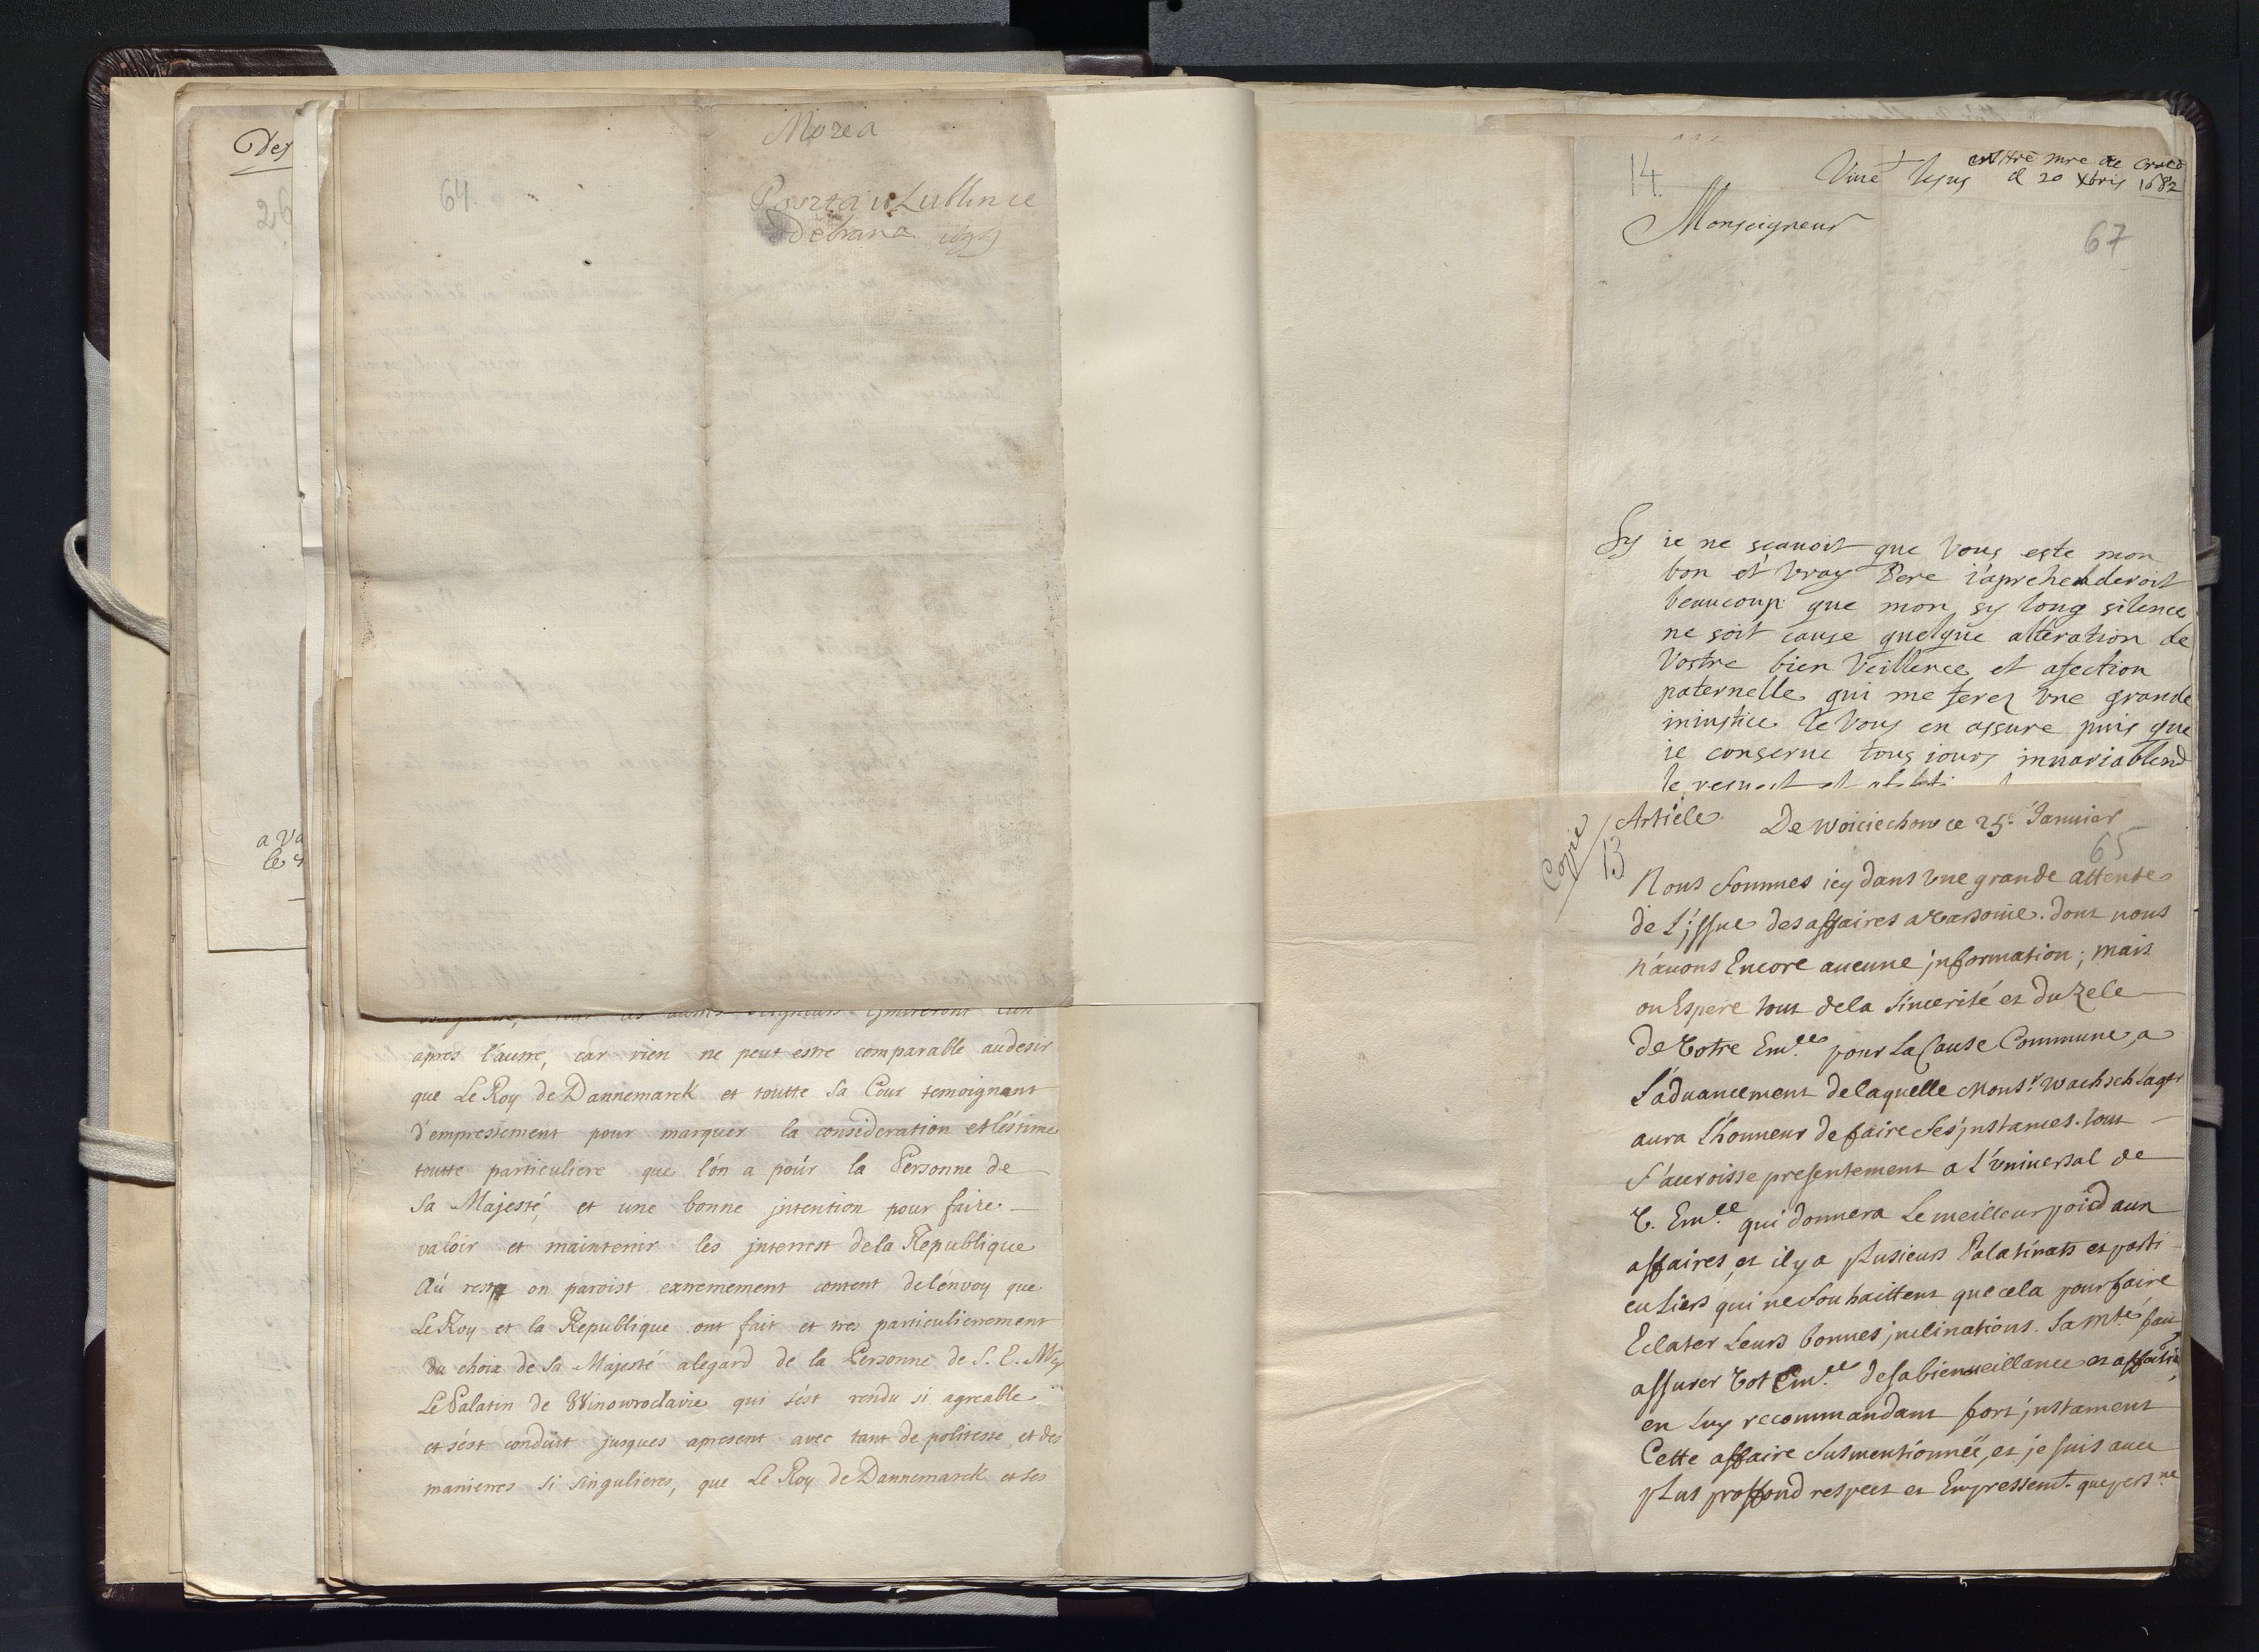 Des
26
a Va
le
Morea
64.
Lublin
odebrana
apres l'autre, car rien ne peut estre comparable au desir
que Le Roy de Dannemarck et toutte Sa Cour temoignent
d'empressement pour marquer la consideration et l'estime
toutte particuliere que l'on a pour la Personne de
Sa Majesté, et une bonne jntention pour faire
valoir et maintenir les jnterest de la Republique
Aú reste on paroist extremement content de l'envoy que
Le Roy et la Republique ont fait et tres particulierement
du choix de Sa Majesté alegard de la Personne de S. E. Mr
Le Palatin de Winowroclavie qui s'est rendu si agreable
et s'est conduit jusques apresent avec tant de politesse et des
manierres si singulieres, que Le Roy de Dannemarck et ses
14.
Vive Iesus
de
20 Xbris 1682
Monseigneur
67
Sy ie ne scauoit que Vous este mon
bon et vray Pere i'aprehenderoit
beaucoup que mon sy long silence
ne soit cause quelque alteration de
Vostre bien Veillence et afection
paternelle qui me ferez vne grande
iniustice Ie Vous en assure puis que
ie conserue tous iours inuariablend
le respect et
Copie
Article De Woiciechow ce 25e Januier
13
65
Nous Sommes icy dans vne grande attente
de L'jssue des affaires a Varsouie. dont nous
n'auons Encore aucune jnformation; mais
on Espere tout de la Sincerité et du Zele
de Votre Emce pour La Cause Commune, a
L'aduancement de laquelle Monsr Wachschlager
aura l'honneur de faire Ses jnstances. tout
S'accroisse presentement a L'vniuersal de
V. Emce qui donnera Le meilleur poid aux
affaires, et il y a plusieurs Palatinats et parti
culiers qui ne Souhaittent que cela pour faire
Eclater Leurs bonnes jnclinations. Sa Mté fait
assurer Vot Emce de sa bienueillance et affection
en Luy recommandant fort jnstament
Cette affaire Susmentionnée, et je suis auec
plus proffond respect et Empressemt. que persne